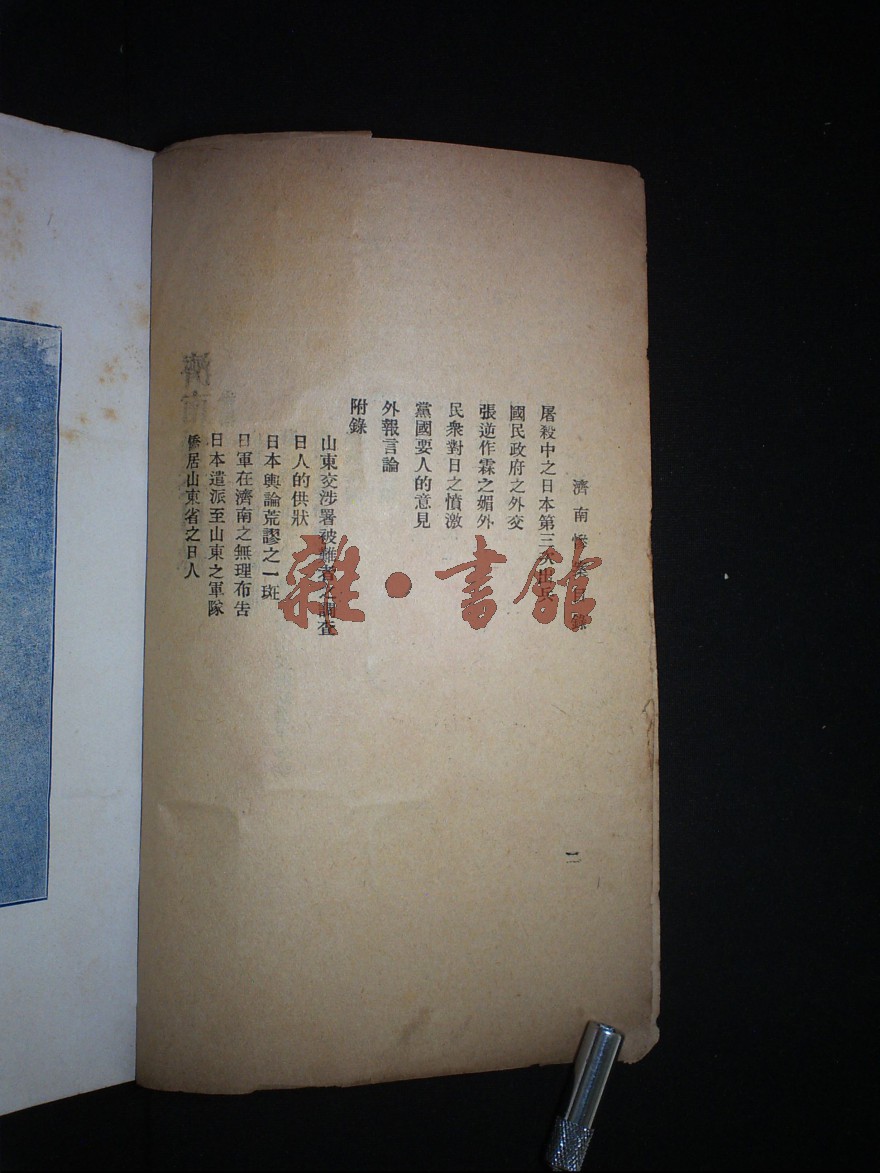 濟南慘案目錄
屠殺中之日本第三次出兵
國民政府之外交
張逆作霖之媚外
民衆對日之憤激
黨國要人的意見
外報言論
附錄
山東交涉署被難者之調查
日人的供狀
日本輿論荒謬之一斑
日軍在濟南之無理布告
日本遣派至山東之軍隊
僑居山東省之日人
二
雜·書館